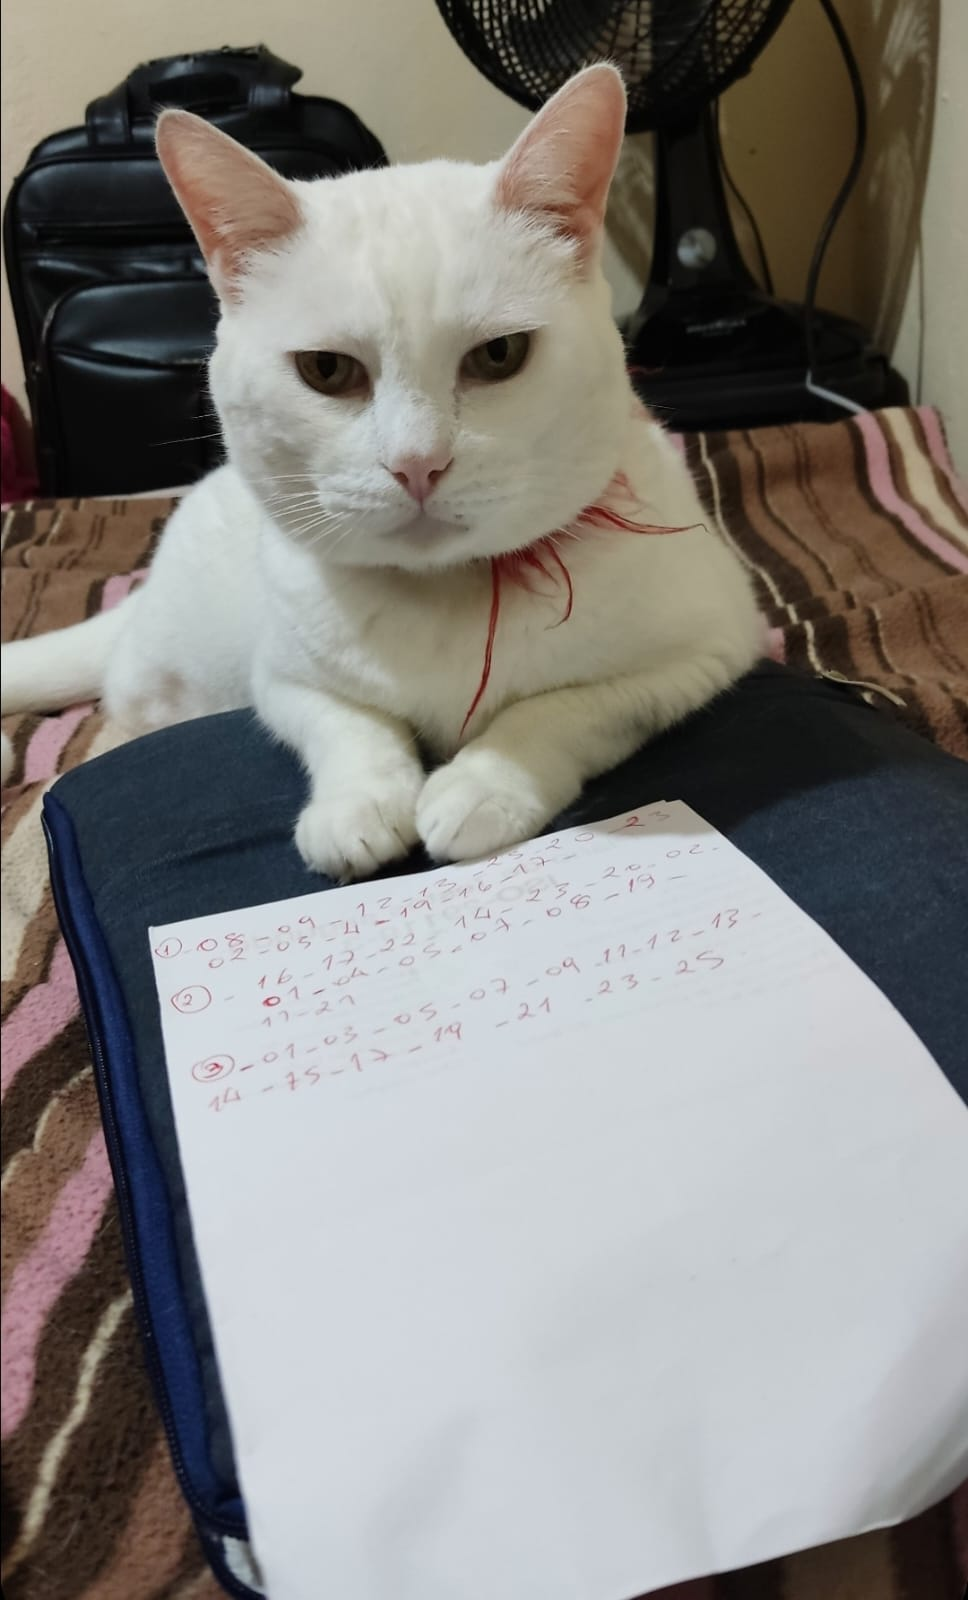 ①-08-09-12-13-25-20-23
02-05-4-19-16-17-
②- 16-17-22-14-23-20-02-
01-04-05-07-08-19-
11-21
③-01-03-05-07-09-11-12-13-
14-15-17-19-21-23-25